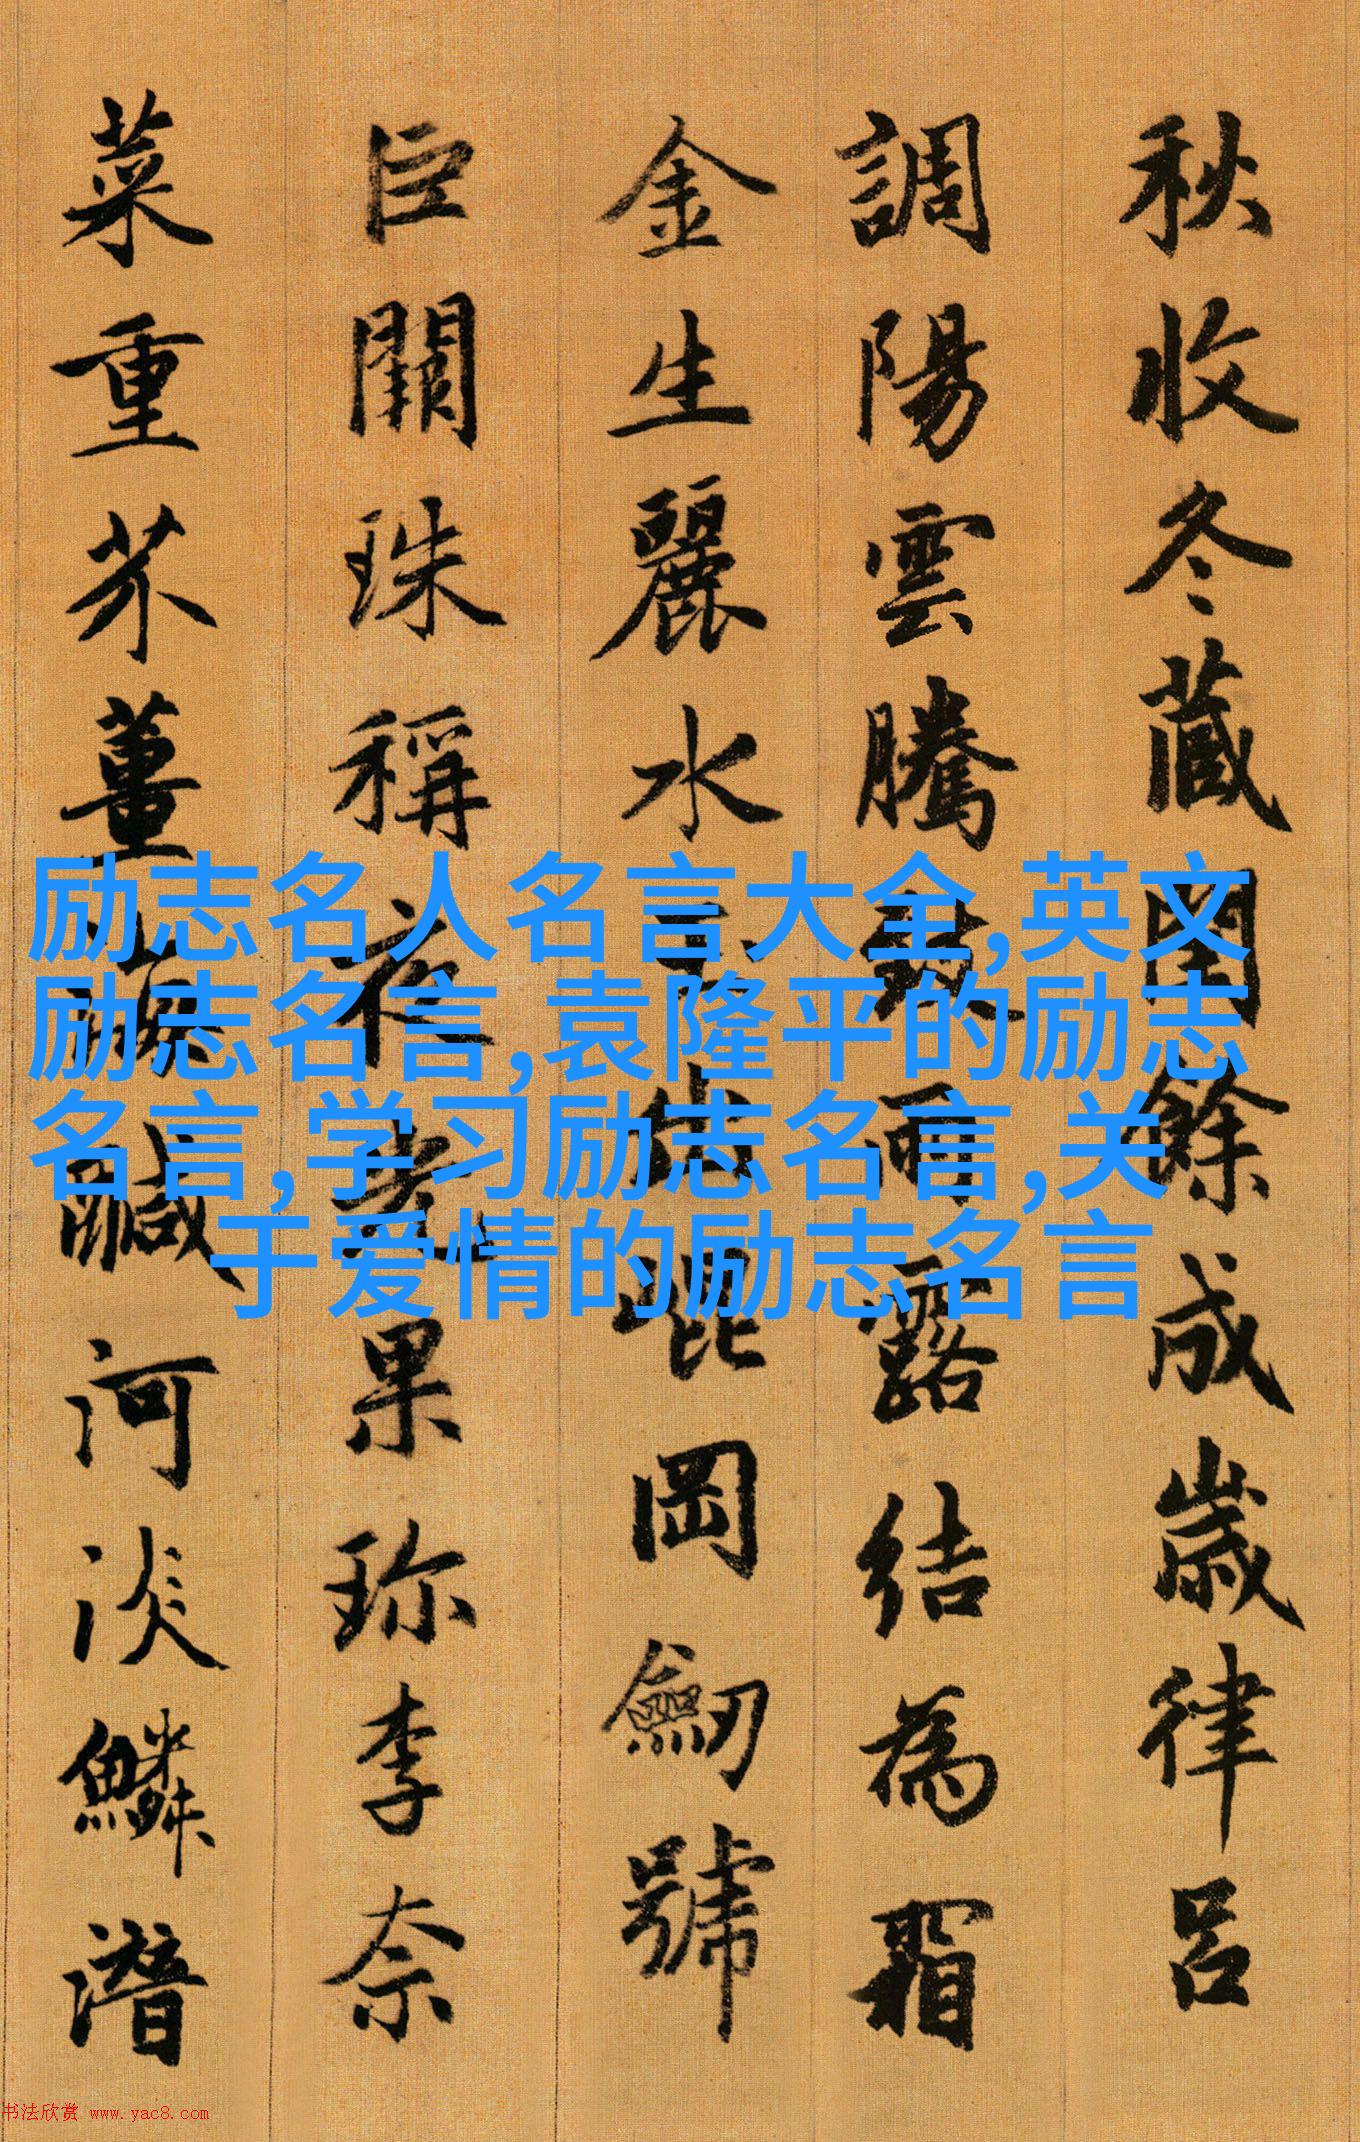 秋收冬藏閏餘成歲律呂
調陽雲騰致雨露結為霜
金生麗水玉出崐岡劒號
巨闕珠稱夜光果珎李奈
菜重芥薑海鹹河淡鱗潛
励志名人名言大全,英文
励志名言,袁隆平的励志
名言,学习励志名言,关
于爱情的励志名言
书法欣赏 www.yac8.com